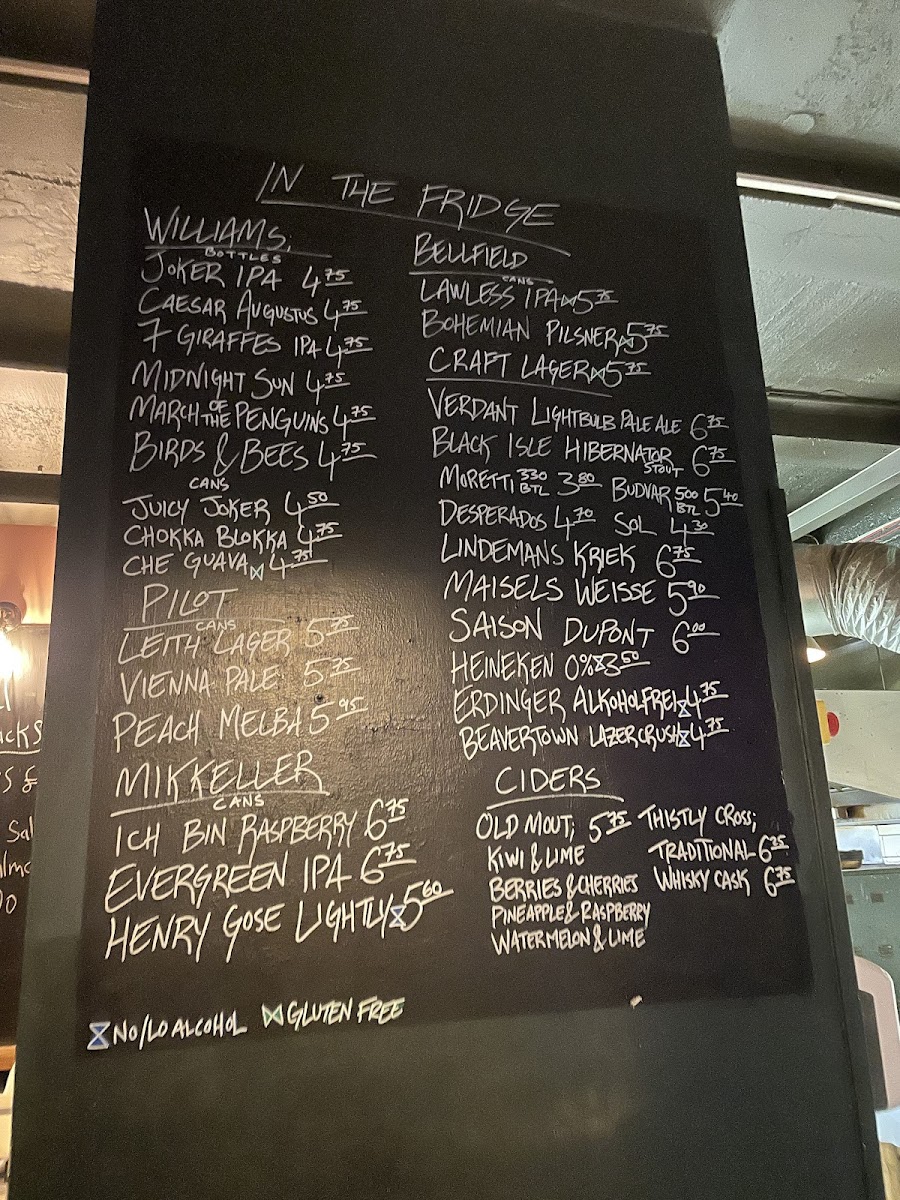 IN THE FRIDGE
WILLIAMS;
BOTTLES
JOKER IPA 4.75
CAESAR AUGUSTUS 4.75
7 GIRAFFES IPA 4.75
MIDNIGHT SUN 4.75
MARCH OF THE PENGUINS 4.75
BIRDS & BEES 4.75
CANS
JUICY JOKER 4.50
CHOKKA BLOKKA 4.75
CHE GUAVA ⋈ 4.75
PILOT
CANS
LEITH LAGER 5.75
VIENNA PALE 5.75
PEACH MELBA 5.95
MIKKELLER
CANS
ICH BIN RASPBERRY 6.75
EVERGREEN IPA 6.75
HENRY GOSE LIGHTLY ⧖ 5.60
BELLFIELD
CANS
LAWLESS IPA ⋈ 5.75
BOHEMIAN PILSNER ⋈ 5.75
CRAFT LAGER ⋈ 5.75
VERDANT LIGHTBULB PALE ALE 6.75
BLACK ISLE HIBERNATOR STOUT 6.75
MORETTI 330 BTL 3.80 BUDVAR 500 BTL 5.40
DESPERADOS 4.70 SOL 4.30
LINDEMANS KRIEK 6.75
MAISELS WEISSE 5.90
SAISON DUPONT 6.00
HEINEKEN 0% ⧖ 3.60
ERDINGER ALKOHOLFREI ⧖ 4.75
BEAVERTOWN LAZER CRUSH ⧖ 4.75
CIDERS
OLD MOUT; 5.75
KIWI & LIME
BERRIES & CHERRIES
PINEAPPLE & RASPBERRY
WATERMELON & LIME
THISTLY CROSS;
TRADITIONAL 6.35
WHISKY CASK 6.75
⧖ NO/LO ALCOHOL ⋈ GLUTEN FREE